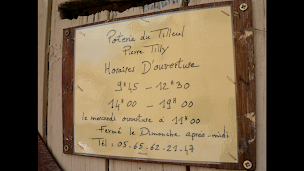 Poterie du Tilleul
Pierre Tilly
Horaires D'ouverture
9h45 - 12h30
14h00 - 19h00
le mercredi ouverture à 11h00
Fermé le Dimanche après-midi
Tél : 05.65.62.21.47